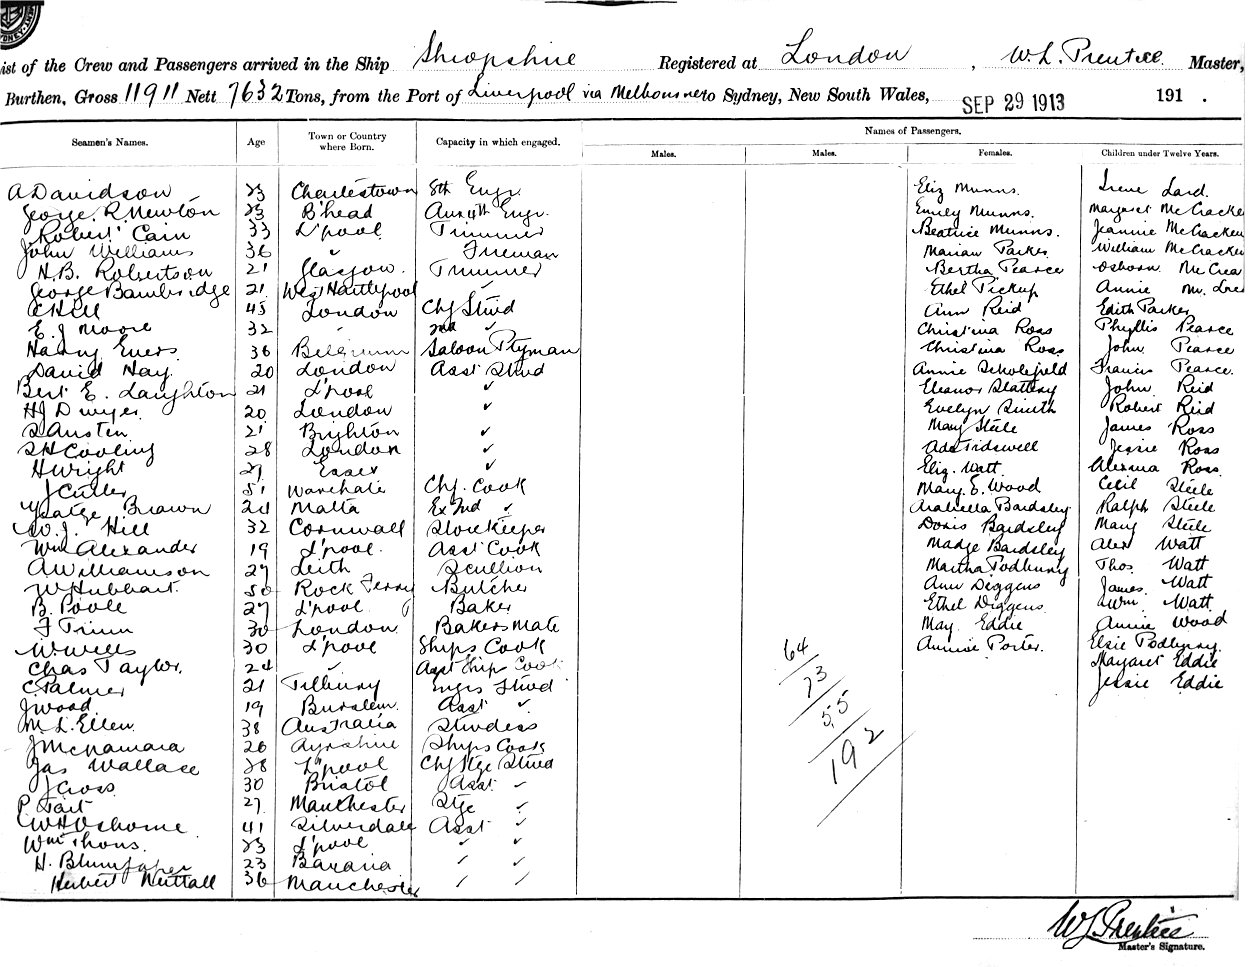 ist of the Crew and Passengers arrived in the Ship Shropshire Registered at London , W. L. Prentice Master,
Burthen, Gross 11911 Nett 7632 Tons, from the Port of Liverpool via Melbourne to Sydney, New South Wales, SEP 29 1913 191 .
Names of Passengers.
Seamen's Names. Age Town or Country where Born. Capacity in which engaged. Males. Males. Females. Children under Twelve Years.
A Davidson 23 Charlestown 8th Engr. Eliz Munns. Irene Lard.
George R Newton 23 B'head Aux 4th Engr. Emily Munns. Margaret McCracken
Robert Cain 33 L'pool Trimmer Beatrice Munns. Jeannie McCracken
John Williams 36 " Fireman Marian Parker William McCracken
H.B. Robertson 21 Glasgow. Trimmer Bertha Pearce Osborn McCrea
George Bambridge 21 West Hartlepool ✓ Ethel Pickup Annie
C Hill 45 London Chf Stwd Ann Reid Edith Parker
E. J Moore 32 " 2nd ✓ Christina Ross Phyllis Pearce
Harry Evers 36 Belgium Saloon Ptyman Christina Ross John Pearce
David Hay 20 London Asst Stwd Annie Scholefield Francis Pearce.
Bert E. Laughton 21 L'pool ✓ Eleanor Slattery John Reid
HJ Dwyer 20 London ✓ Evelyn Smith Robert Reid
S Austen 21 Brighton ✓ Mary Steele James Ross
SH Cooling 28 London ✓ Ada Tidswell Jessie Ross
H Wright 27 Essex ✓ Eliz. Watt Ross
J Cutler 51 Chf. Cook Mary E. Wood Cecil Steele
Brown 24 Malta Ex 2nd ✓ Arabella Bardsley Ralph Steele
W. J. Hill 32 Cornwall Storekeeper Doris Bardsley Mary Steele
Wm Alexander 19 L'pool. Asst Cook Madge Bardsley Alex Watt
A Williamson 27 Leith Scullion Martha Podbury Thos. Watt
W Hubbart 50 Rock Ferry Butcher Ann Diggens James. Watt
B. Poole 27 L'pool Baker Ethel Diggens. Wm. Watt
F Trim 30 London Bakers Mate May Eddie Annie Wood
W. Wells 30 L'pool Ships Cook Annie Porter. Elsie Podbury
Chas Taylor. 24 ✓ Asst Ship Cook Margaret Eddie
C Palmer 21 Tilbury Engrs Stwd Jessie Eddie
J Wood 19 Burslem Asst ✓
M L. Ellen 38 Australia Stwdess
J McNamara 26 Ayrshire Ships Cook
Jas Wallace 28 L'pool Chf Stge Stwd
J Cross 30 Bristol Asst ✓
P Tait 27 Manchester Stge ✓
W H Osborne 41 Silverdale Asst ✓
Wm Thons. 23 L'pool ✓ ✓
H. 23 Bavaria ✓ ✓
Herbert Nuttall 36 Manchester ✓ ✓
64
73
55
192
WL Prentice
Master's Signature.